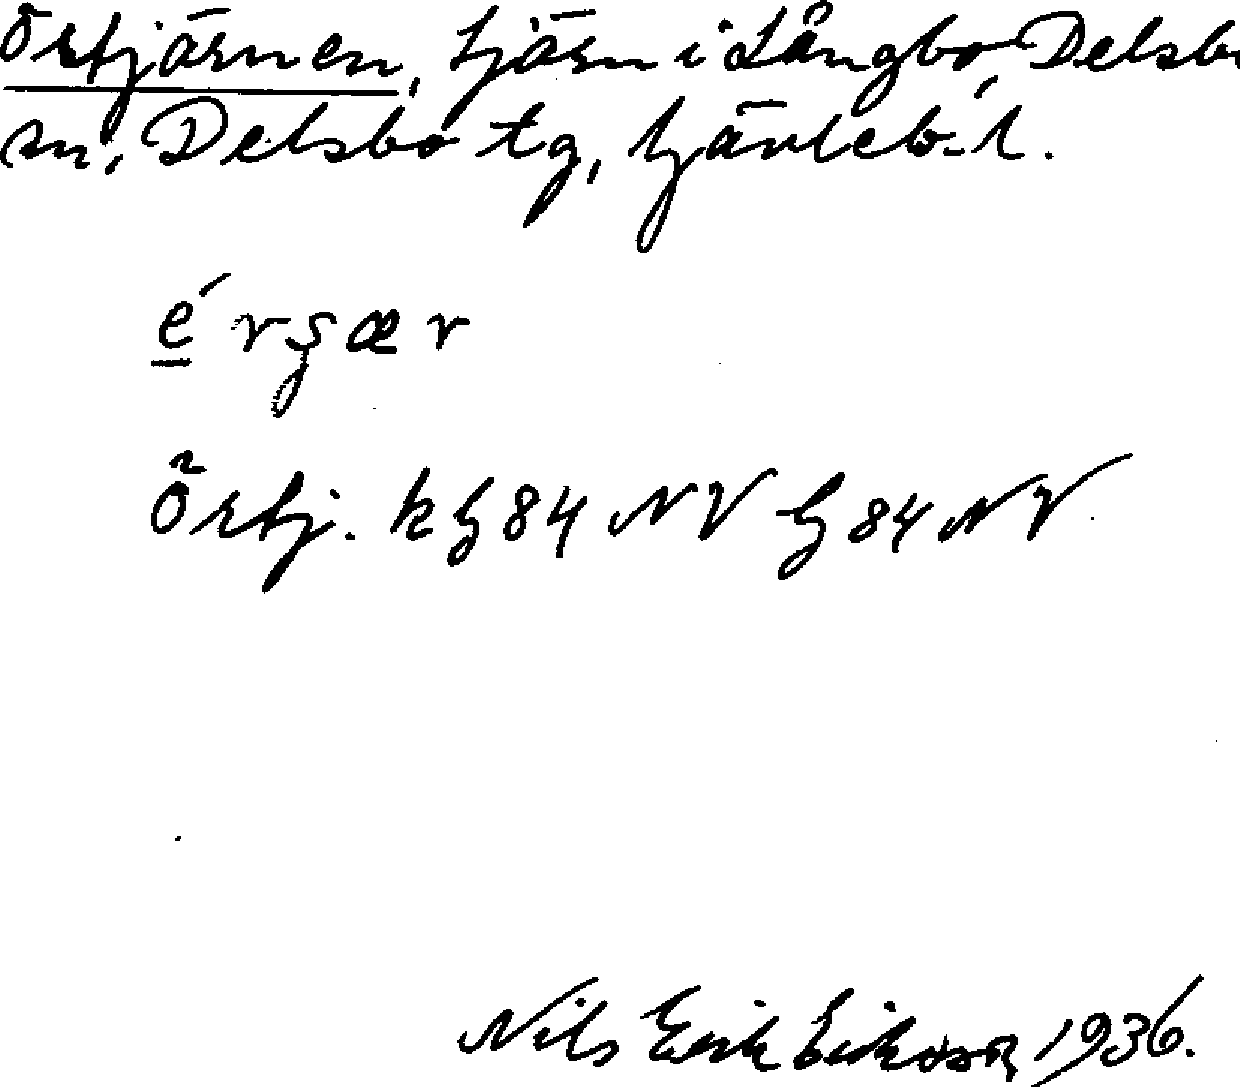 Örtjärnen, tjärn i Långbo, Delsbo
sn, Delsbo tg, Gävleb. l.
é̱rʂær
Örtj. k G84 NV G 84 NV
Nils Erik Eriksson 1936.